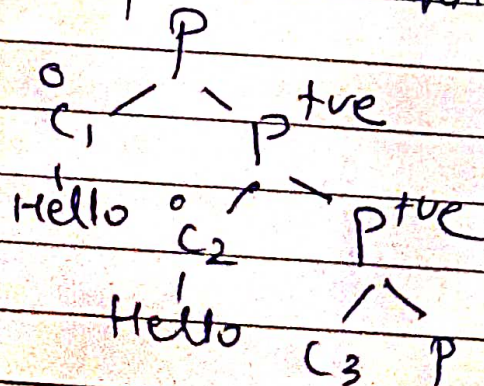 P
0
C1 P +ve
Hello 0
C2 P +ve
Hello C3 P